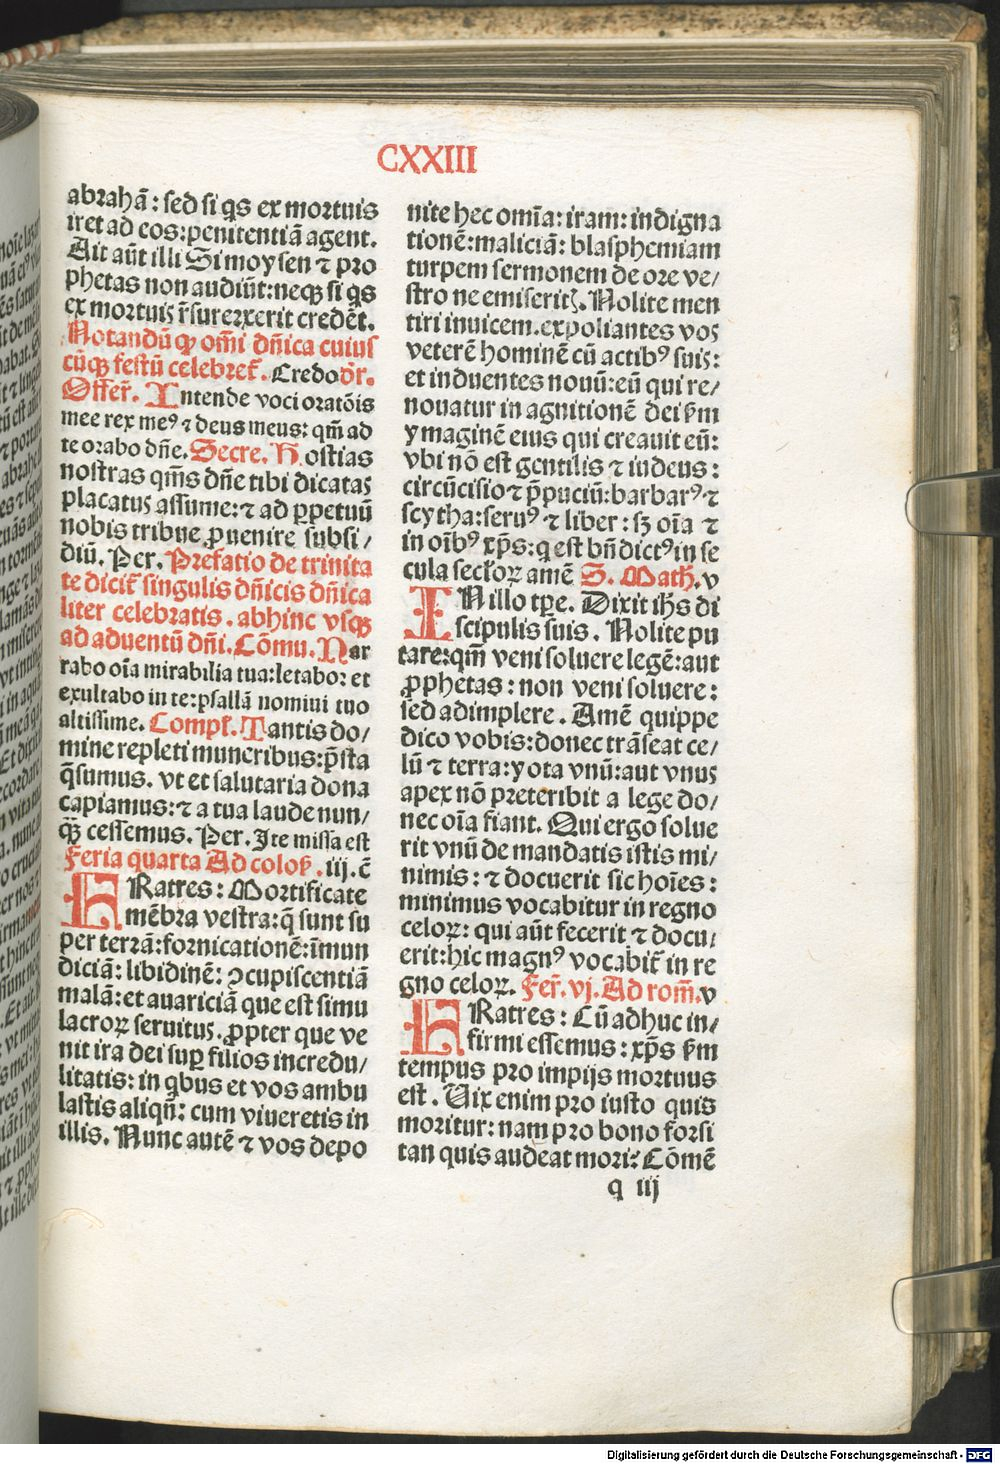 CXXIII
abrahã : sed si q̃s ex mortuis
iret ad eos : penitentiã agent.
Ait aũt illi Si moysen ⁊ pro
phetas non audiũt: neqꝫ si q̃s
ex mortuis r̃surrexerit credẽt.
Notandũ ꝙ om̃i dñica cuius
cũqꝫ festũ celebret̃. Credo dr̃.
Offer̃. Intende voci oratõis
mee rex meꝰ ⁊ deus meus: qm̃ ad
te orabo dñe. Secre. Hostias
nostras qm̃s dñe tibi dicatas
placatus assume: ⁊ ad ꝑpetuũ
nobis tribue ꝓuenire subsi/
diũ. Per. Prefatio de trinita
te dicit̃ singulis dñicis dñica
liter celebratis. abhinc vsqꝫ
ad aduentũ dñi. Cõmu. Nar
rabo oĩa mirabilia tua: letabor et
exultabo in te: psallã nomini tuo
altissime. Compl̃. Tantis do/
mine repleti muneribus: p̃sta
q̃sumus. vt et salutaria dona
capiamus: ⁊ a tua laude nun/
qꝫ̃ cessemus. Per. Ite missa est
Feria quarta Ad colos̃. iij. c̃
FRatres : Mortificate
mẽbra vestra: q̃ sunt su
per terrã: fornicationẽ: ĩmun
diciã: libidinẽ: ꝯcupiscentiã
malã: et auariciã que est simu
lacroꝝ seruitus. ꝓpter que ve
nit ira dei suꝑ filios incredu/
litatis: in q̃bus et vos ambu
lastis aliqñ: cum viueretis in
illis. Nunc autẽ ⁊ vos depo
nite hec omĩa: iram: indigna
tionẽ: maliciã: blasphemiam
turpem sermonem de ore ve/
stro ne emiseritꝭ. Nolite men
tiri inuicem. expoliantes vos
veterẽ hominẽ cũ actibꝰ suis:
et induentes nouũ: eũ qui re/
nouatur in agnitionẽ dei ẞm
ymaginẽ eius qui creauit eũ:
vbi nõ est gentilis ⁊ iudeus:
circũcisio ⁊ p̃puciũ: barbarꝰ ⁊
scytha: seruꝰ ⁊ liber : sꝫ oĩa ⁊
in oĩbꝰ xp̃s: q̃ est bñdictꝰ in se
cula secl̃oꝝ amẽ S. Math. v
INillo tꝑe. Dixit ih̃s di
scipulis suis. Nolite pu
tare: qm̃ veni soluere legẽ: aut
ꝓphetas : non veni soluere:
sed adimplere. Amẽ quippe
dico vobis: donec trãseat ce/
lũ ⁊ terra: yota vnũ: aut vnus
apex nõ preteribit a lege do/
nec oĩa fiant. Qui ergo solue
rit vnũ de mandatis istis mi/
nimis : ⁊ docuerit sic hoĩes :
minimus vocabitur in regno
celoꝝ: qui aũt fecerit ⁊ docu/
erit: hic magnꝰ vocabit̃ in re
gno celoꝝ. Fer̃. vj. Ad rom̃. v
FRatres : Cũ adhuc in/
firmi essemus: xp̃s ẞm
tempus pro impijs mortuus
est. Uix enim pro iusto quis
moritur: nam pro bono forsi
tan quis audeat mori: Cõmẽ
q iij
Digitalisierung gefördert durch die Deutsche Forschungsgemeinschaft - DFG